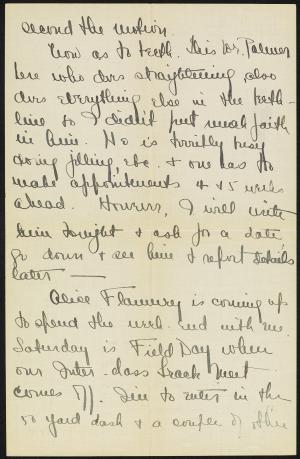 second the motion.
Now as to teeth. This Dr. Palmer
here who does straightening also
does everything else in the teeth-
line so I didn't put much faith
in him. He is terribly busy
doing filling etc. & one has to
make appointments 4 & 5 weeks
ahead. However, I will write
him tonight & ask for a date,
go down & see him & report details
later —
Alice Flannery is coming up
to spend the week-end with me.
Saturday is Field Day when
our Inter-class Track Meet
comes off. I'm to enter in the
50 yard dash & a couple of other